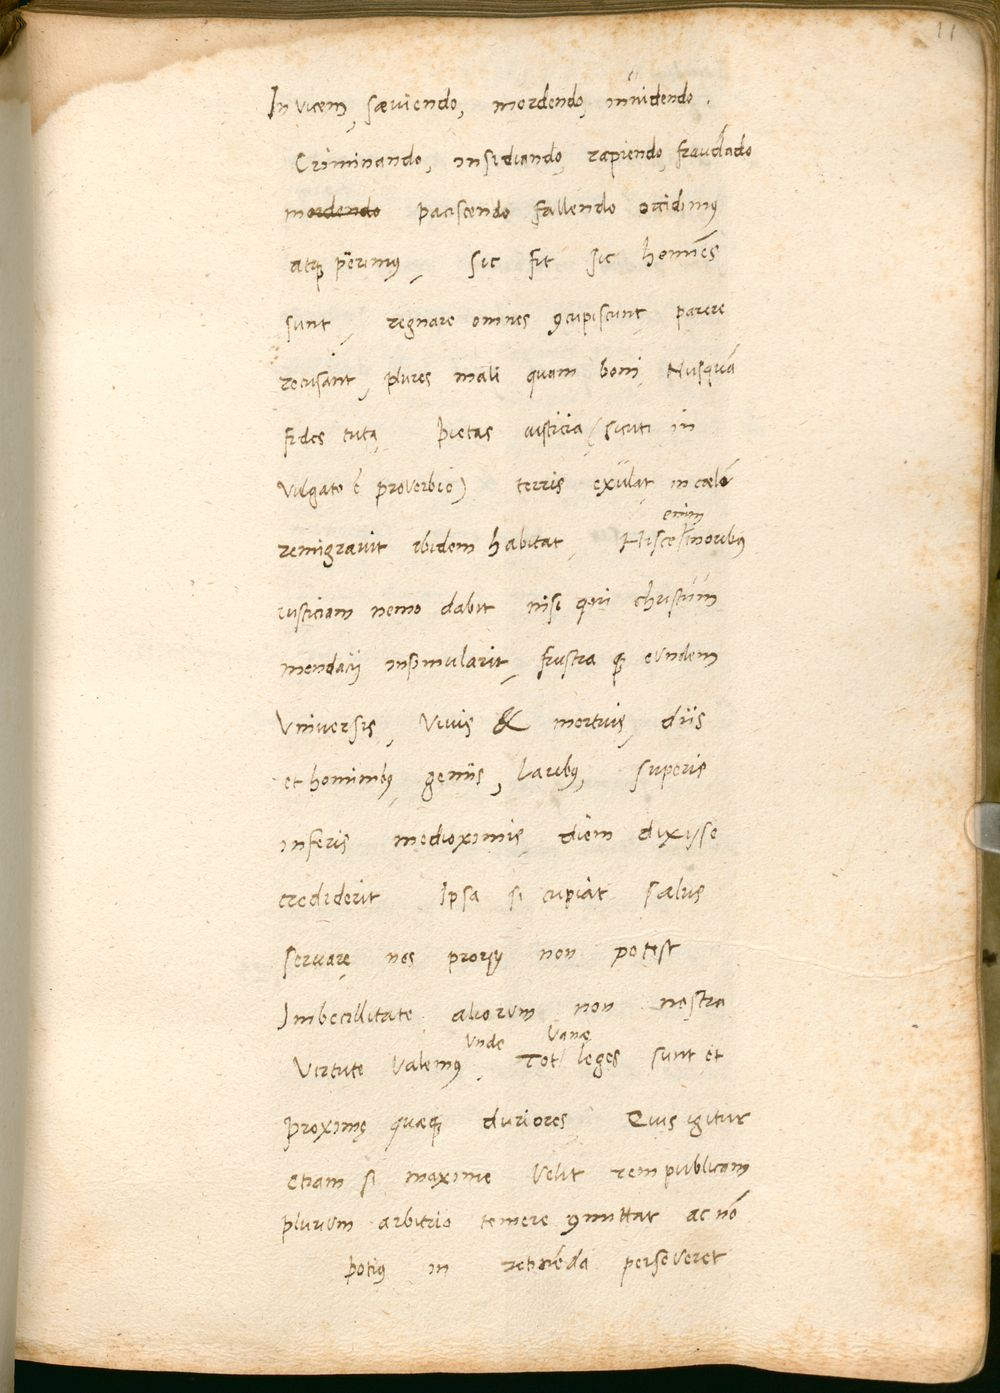 11
In vicem, sæviendo, mordendo, inuidendo.
Criminando, insidiando, rapiendo, fraudādo
mordendo paciscendo fallendo occidimꝰ
atqꝫ perimꝰ, sic fit sic homies
sunt, regnare omnes ꝯcupiscunt, parere
recusant, plures mali quam boni, Nusquā
fides tuta, pietas iusticia (sicuti in
vulgato ē proverbio) terris exulat in cœlū
remigravit ibidem habitat,
enim
iusticiam nemo dabit nisi qui christum
mendacij insimularit, frustra qꝫ eundem
Universis, Vivis & mortuis, diis
et hominibꝰ, geniis, laribꝰ, superis
inferis medioximis, diem dixisse
crediderit Ipsa si cupiat salus
servare nos prorsꝰ non potest
Imbecillitate aliorum non nostra
unde vanæ
Virtute Valemꝰ, Tot leges sunt et
proximę quæqꝫ duriores Quis igitur
etiam si maxime velit rempublicam
plurium arbitrio temere ꝯmittat ac nō
potiꝰ in retinēda perseveret